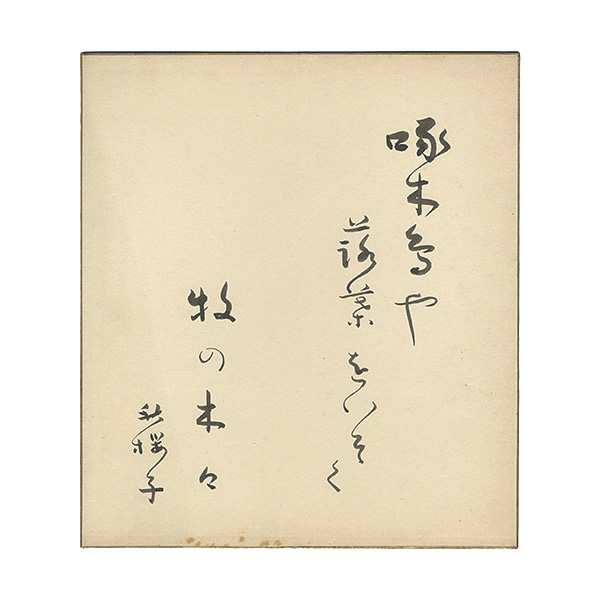 啄木鳥や
落葉をいそぐ
牧の木々
秋櫻子